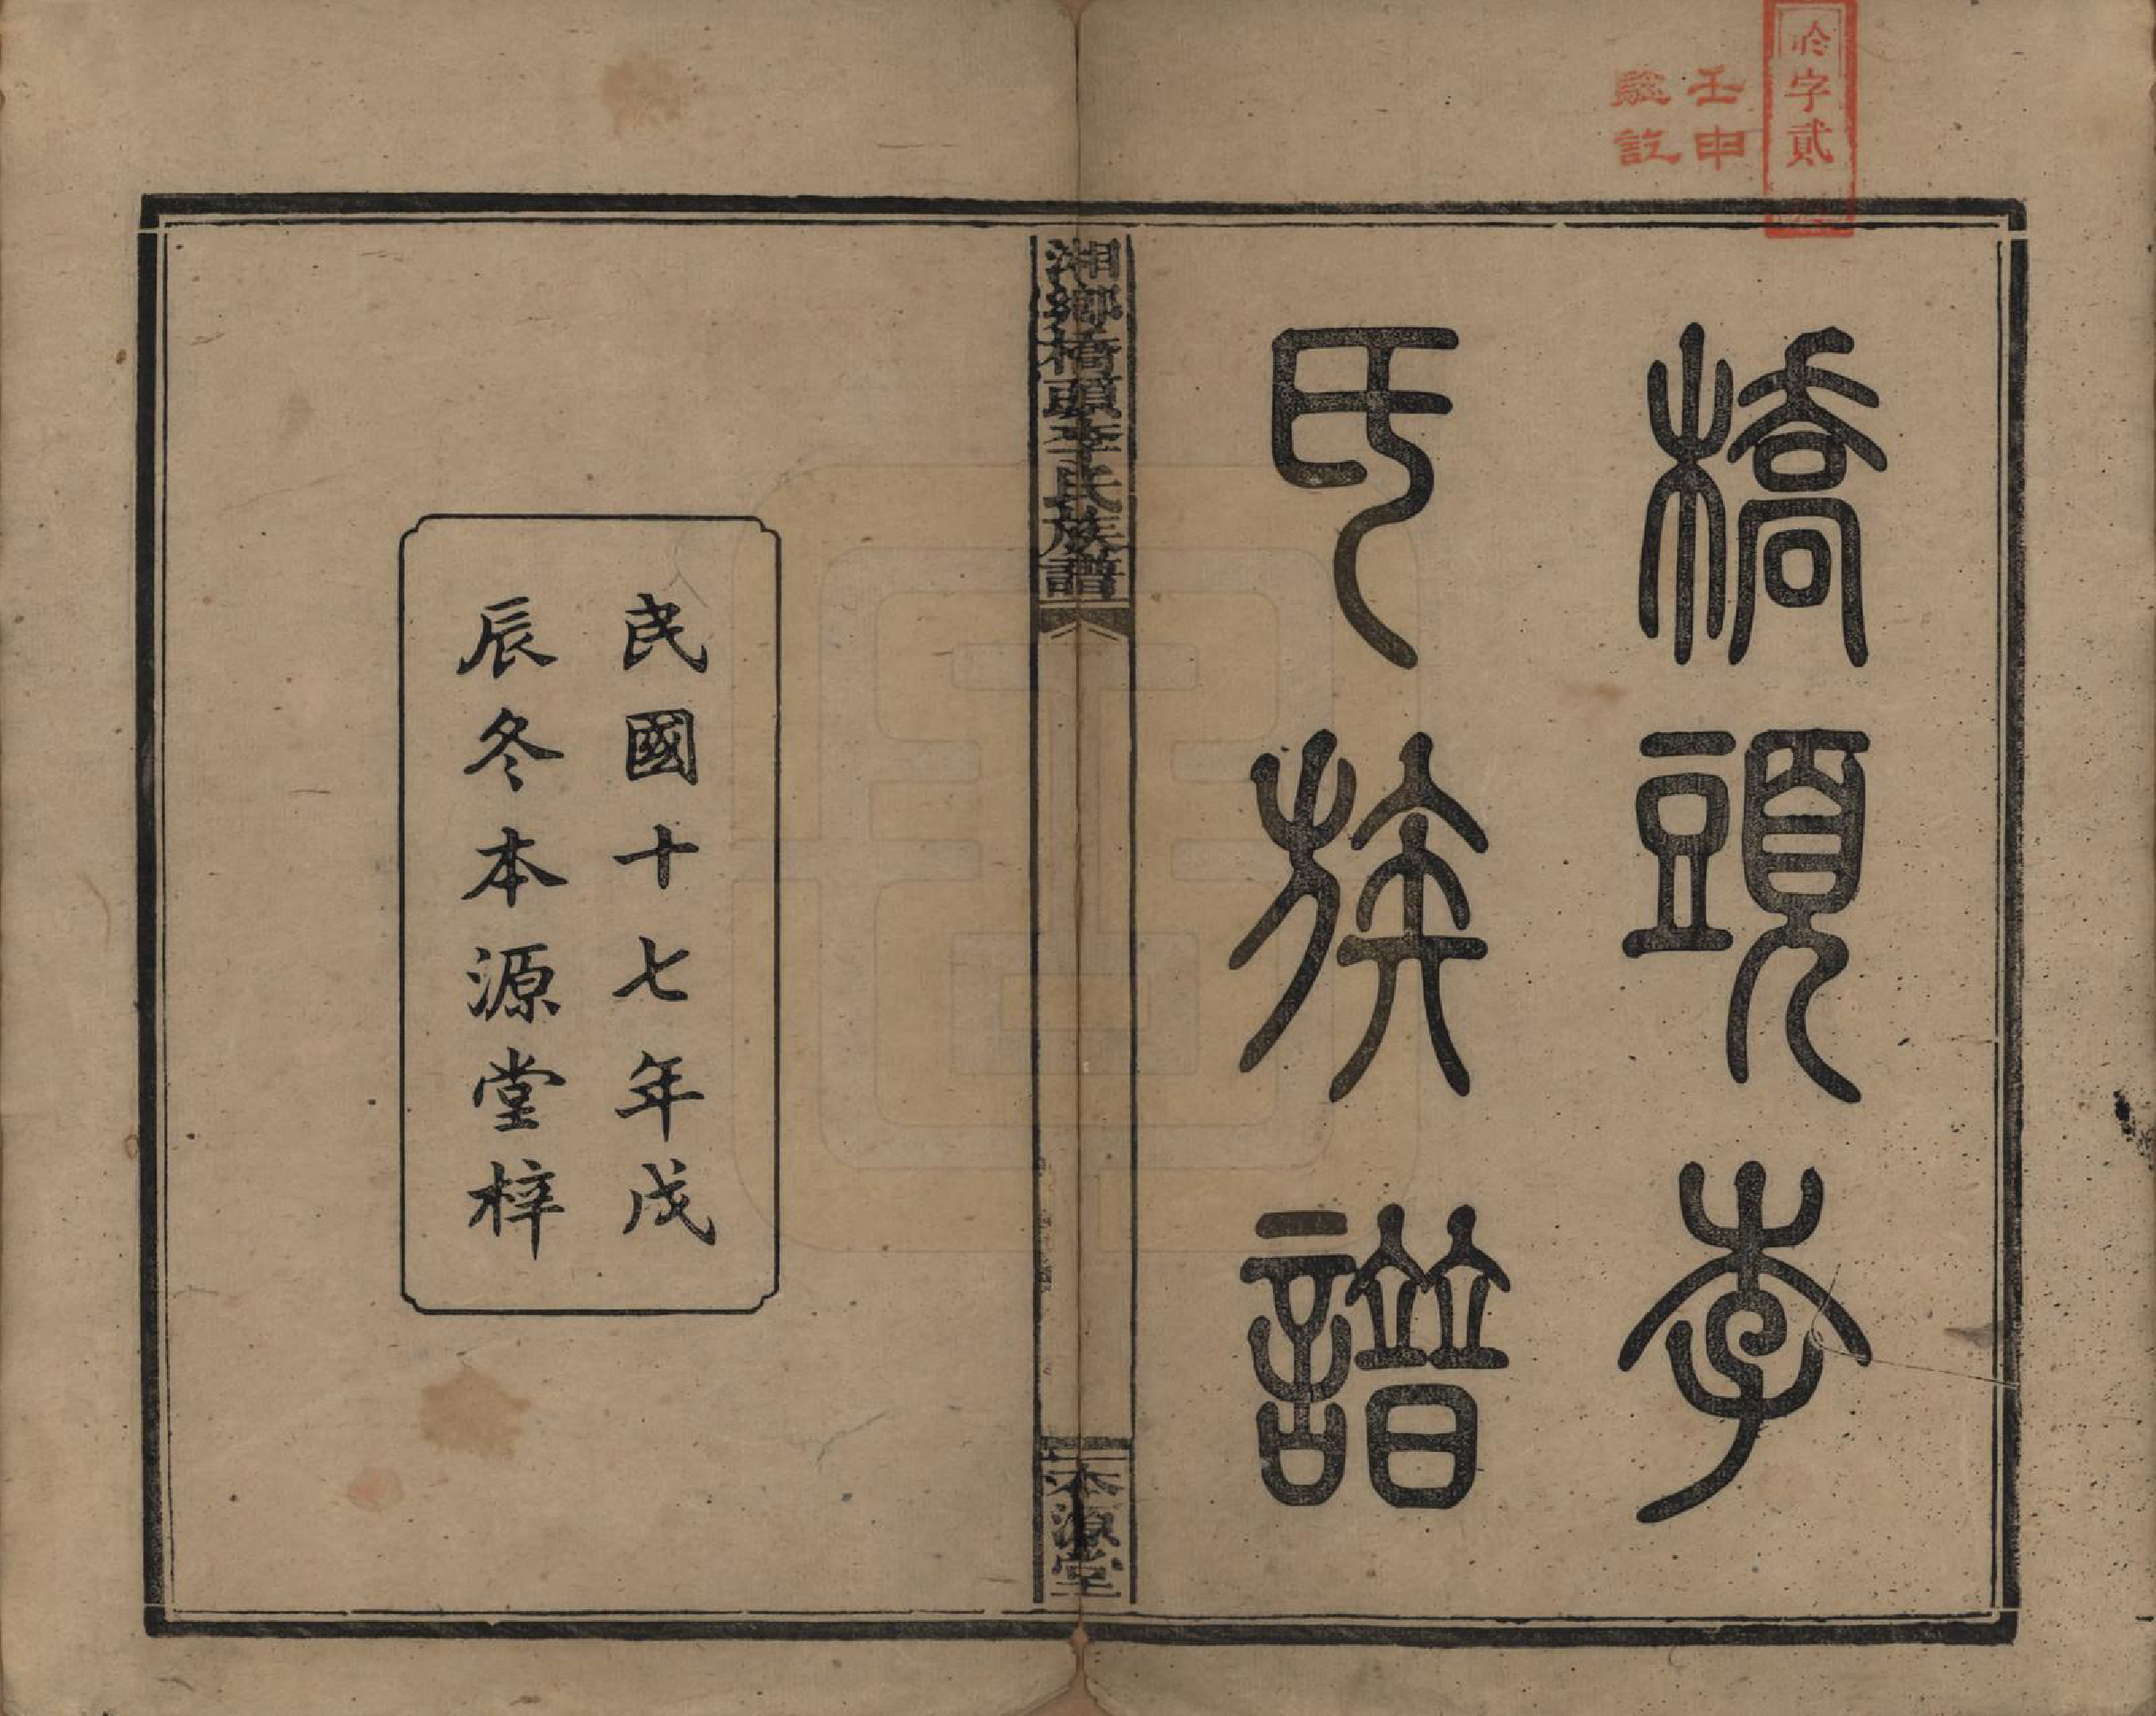 橋頭李
氏族譜
字貳
壬申
驗註
湘鄉橋頭李氏族譜
本源堂
民國十七年戊
辰冬本源堂梓